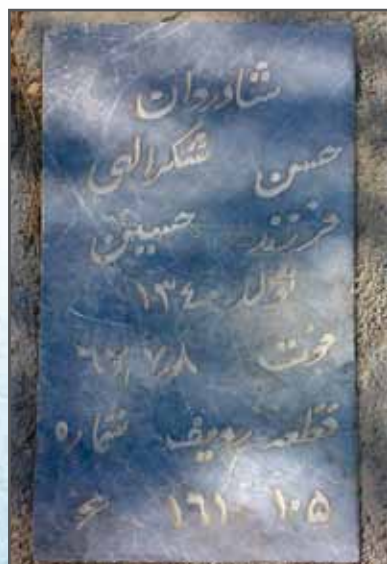 شادروان
حسن شکرالهی
فرزند حسین
تولد ۱۳۴۰
فوت ۶۷/۷/۸
قطعه ردیف شماره
۱۰۵ ۱۶۱ ۶